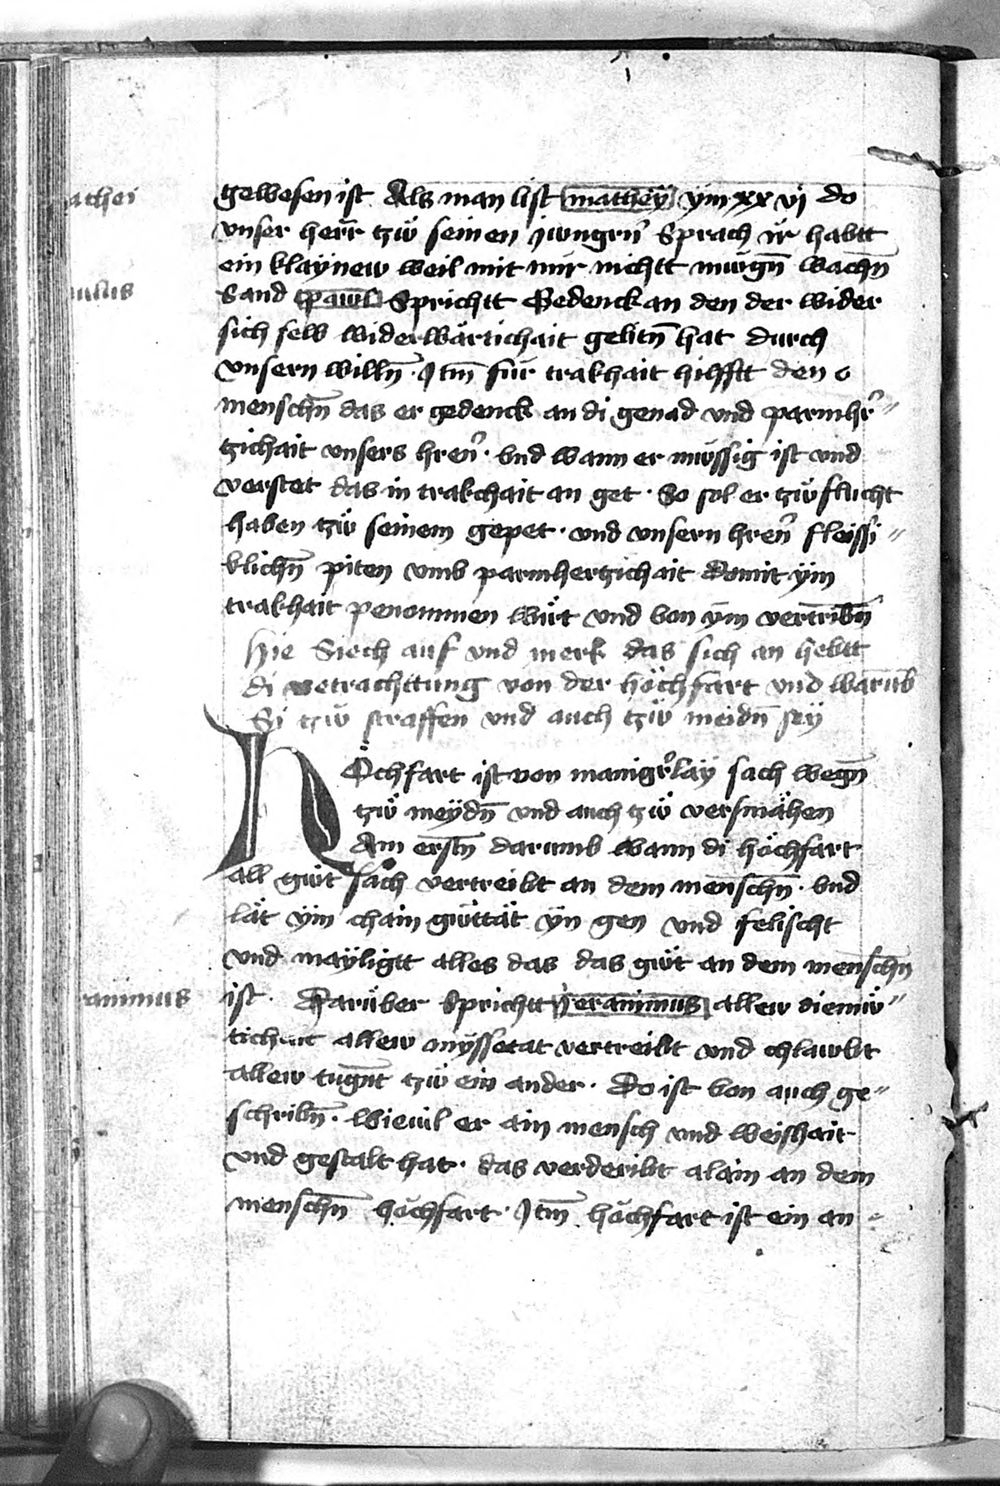 athei
gewesen ist Als man list mathey ym xxvi do
vnser herr tzw̋ seinen jwngrn̄ Sprach ir habtt
ein klaÿnew weil mit mir nichtt mügn̄ wachn̄
aulus
Sand pawl Sprichtt Gedenck an den der wider
sich selb widerwärtichait gelitn̄ hat durch
vnsern willn̄ · Itm̄ für trakhait hilfftt den
menschn̄ das er gedenck an di genad vnd parmhr̄
tzichait vnsers hren̄ · vnd wann er müssig ist vnd
verstet das in trakchait an get · So sol er tzw̋ flucht
haben tzw̋ seinem gepet · vnd vnsern hren̄ fleissi
klichn̄ piten vmb parmhertzichait domit ÿm
trakhait penommen würt vnd von ÿm vertribn̄
Hie Siech auf vnd merk das sich an hebtt
di vetrachttung von der höchfart vnd warūb
Si tzw̋ straffen vnd auch tzw̋ meidn̄ seÿ
Höchfart ist von manigr̄laÿ sach wegn̄
tzw̋ meÿdn̄ vnd auch tzw̋ versmähen
Am erstn̄ darumb wann di höchfart
all gůt sach vertreibt an dem menschn̄ · vnd
lät ÿm chain gůttät ÿn gen vnd felischt
vnd maÿligtt alles das das gůt an dem menschn̄
ranimus
ist · Darüber Sprichtt Jeranimus allew diemü
tichait allew mÿssetat vertreibt vnd chlawbt
allew tugn̄t tzw̋ ein ander · Do ist von auch ge
schribn̄ · wieuil er ain mensch vnd weishait
vnd gestalt hat · das verderibt alain an dem
menschn̄ höchfart · Itm̄ höchfart ist ein an